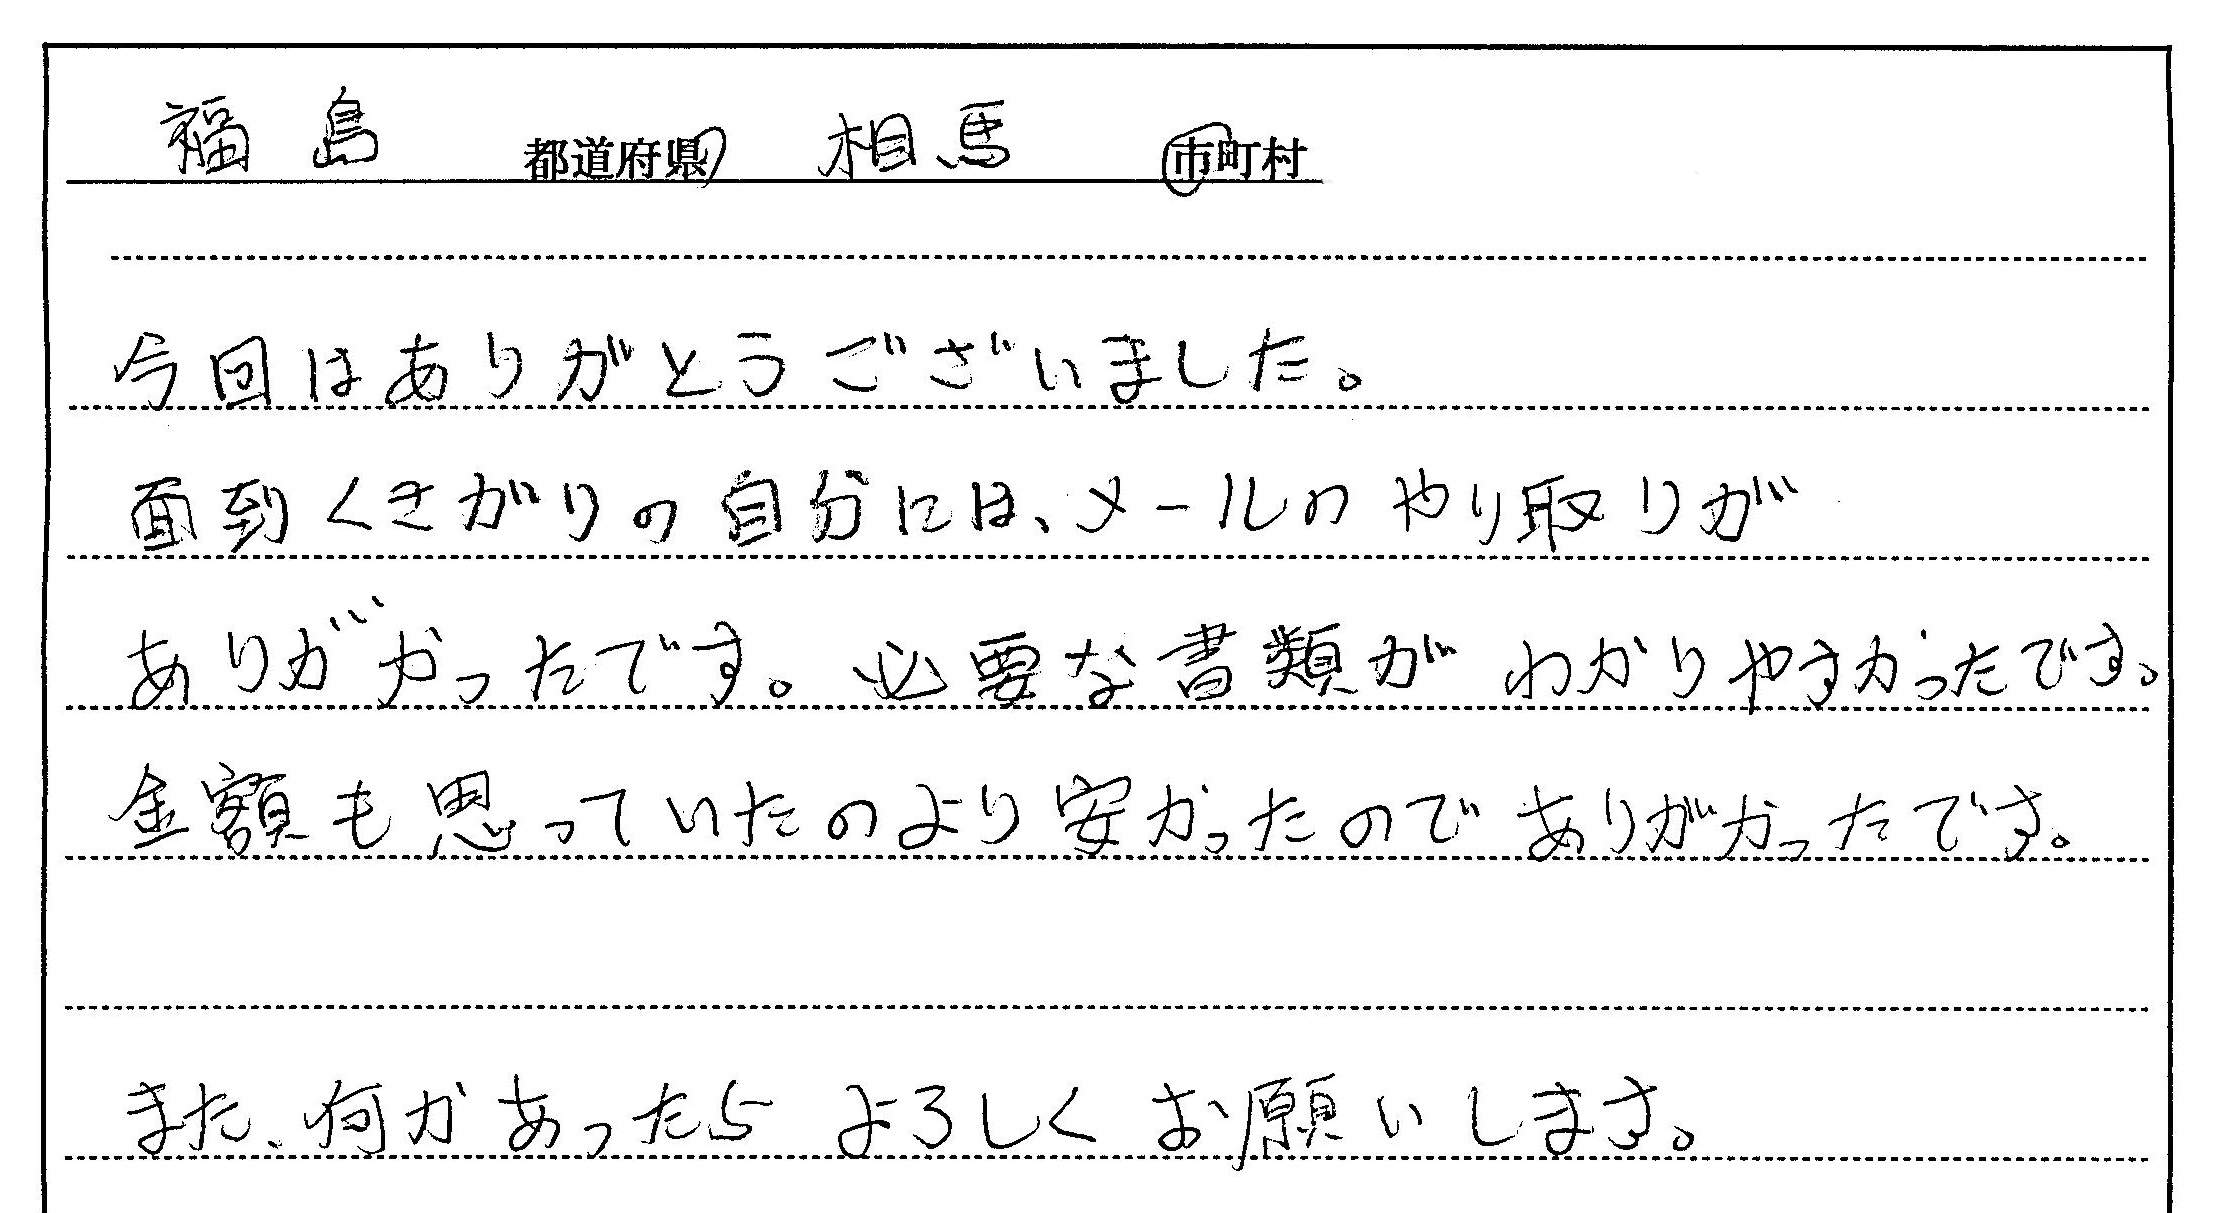 福島 都道府県 相馬 市町村
今回はありがとうございました。
面到くさがりの自分には、メールのやり取りが
ありがかったです。必要な書類がわかりやすかったです。
金額も思っていたのより安かったのでありがかったです。
また、何かあったらよろしくお願いします。